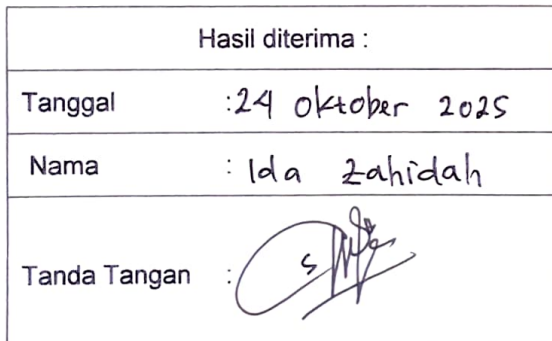 Hasil diterima :
Tanggal : 24 Oktober 2025
Nama : Ida Zahidah
Tanda Tangan :